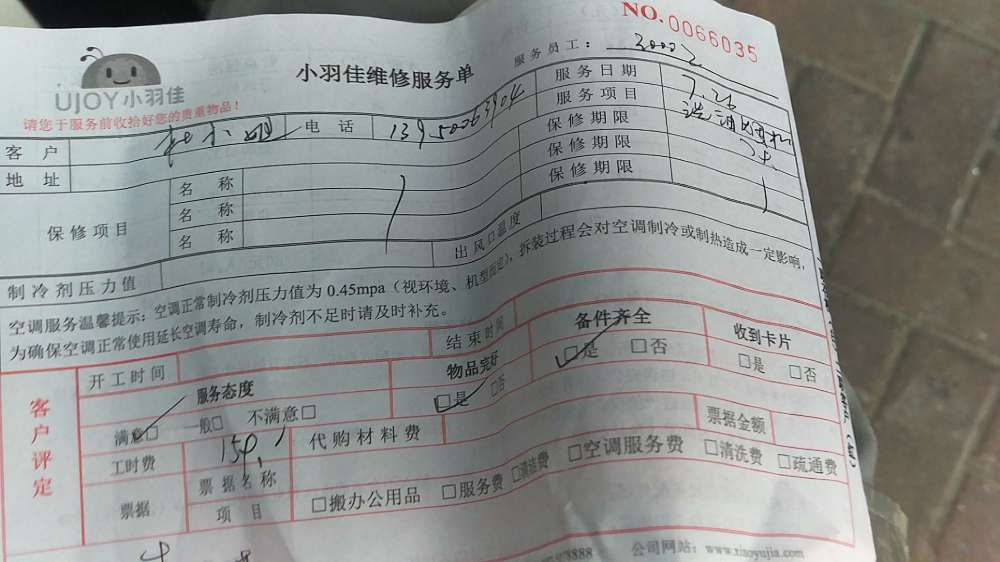 NO.0066035
UJOY小羽佳
小羽佳维修服务单
服务员工：
请您于服务前收拾好您的贵重物品！
客户 电话 服务日期 7.26
地址 服务项目 洗油烟机
保修项目 名称 保修期限
名称 保修期限
名称 保修期限
制冷剂压力值 出风口温度
空调服务温馨提示：空调正常制冷剂压力值为0.45mpa（视环境、机型而定），拆装过程会对空调制冷或制热造成一定影响，
为确保空调正常使用延长空调寿命，制冷剂不足时请及时补充。
客户评定
开工时间 结束时间
服务态度 物品完好 备件齐全 收到卡片
满意□ 一般□ 不满意□ □是 □否 □是 □否 □是 □否
工时费 150 代购材料费 票据金额
票据 票据名称
项目 □搬办公用品 □服务费 □清洁费 □空调服务费 □清洗费 □疏通费
8888 公司网站：www.xiaoyujia.com